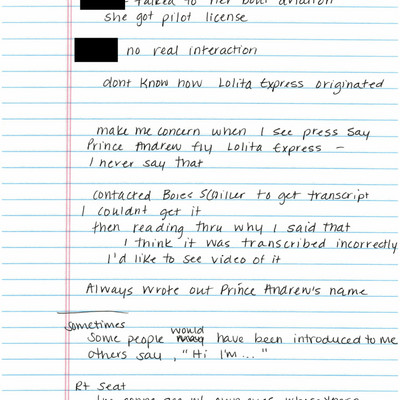 talked to her about aviation
she got pilot license
no real interaction
dont know how Lolita Express originated
make me concern when I see press say
Prince Andrew fly Lolita Express –
I never say that
contacted Boies Schiller to get transcript
I couldnt get it
then reading thru why I said that
I think it was transcribed incorrectly
I'd like to see video of it
Always wrote out Prince Andrew's name
sometimes
would
Some people may have been introduced to me
others say, "Hi I'm..."
Rt seat